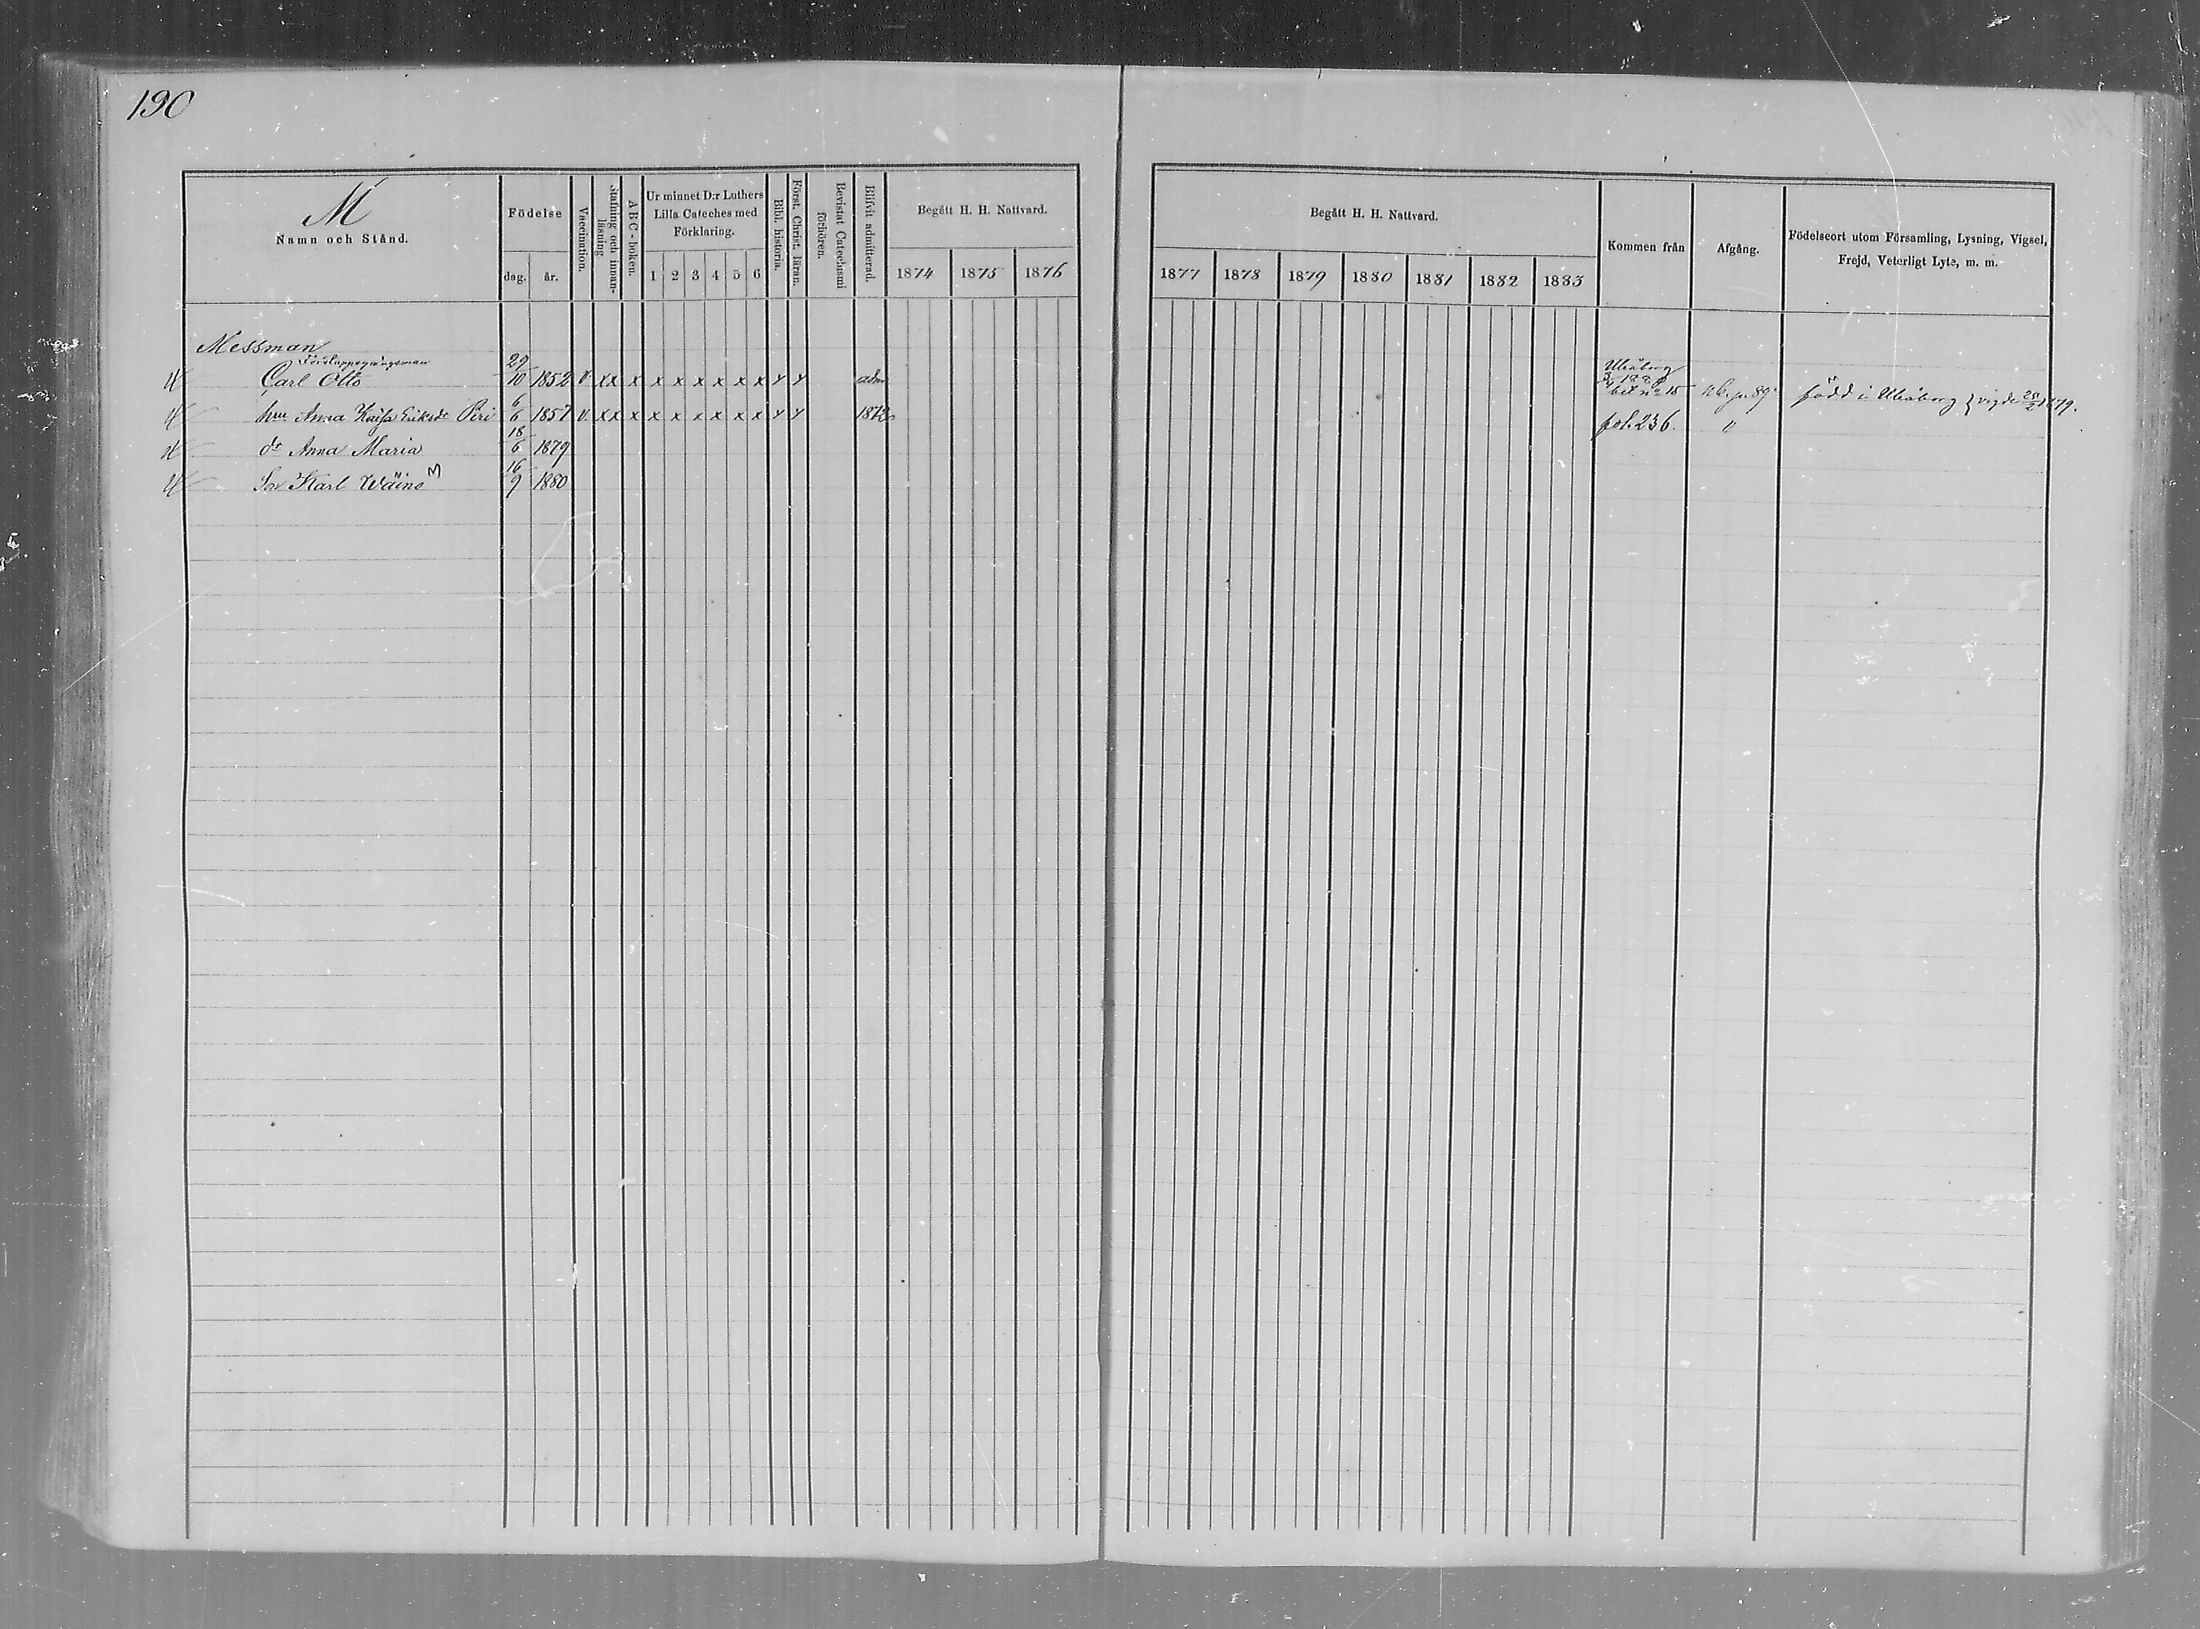 190
M
Namn och Stånd.
Födelse
dag. år.
Vaccination.
Stafning och innan-läsning
ABC-boken.
Ur minnet D:r Luthers
Lilla Cateches med
Förklaring.
1 2 3 4 5 6
Bibl. historia.
Först. Christ. läran.
Bevistat Catechismi förhören.
Blifvit admitterad.
Begått H. H. Nattvard.
1874 1875 1876
Begått H. H. Nattvard.
1877 1878 1879 1880 1881 1882 1883
Kommen från
Afgång.
Födelseort utom Församling, Lysning, Vigsel,
Frejd, Veterligt Lyte, m. m.
Messman
Carl Otto 29/10 1852 v. xx x x x x x x x y y adm Uleåborg bet no 15 född i Uleåborg } vigde 25/2 1879.
hru Anna Kaisa Eriksdr Piri 6/6 1857 v. xx x x x x x x x y y 1873 fol. 236. "
dr Anna Maria 18/6 1879
Son Karl Wäinö M 16/9 1880